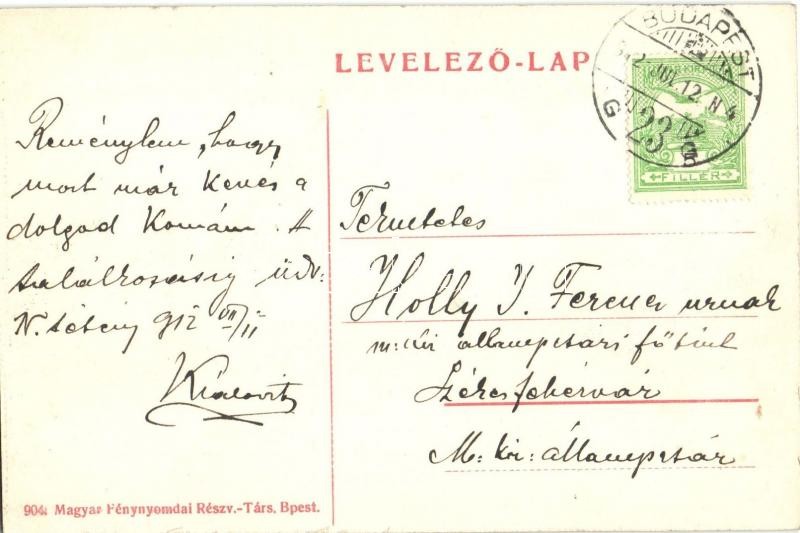 LEVELEZŐ-LAP
BUDAPEST
912 JUL. 12. N 4
23
G G
MAGYAR KIR. POSTA
FILLÉR
Reménylem, hogy
most már kevés a
dolgod Komám. A
találkozásig üdv:
N. tétény 912 VII/11
Tekintetes
Holly J. Ferenc urnak
m: kir állampztári főtiszt
Székesfehérvár
M: kir: állampztár
904. Magyar Fénynyomdai Részv.-Társ. Bpest.